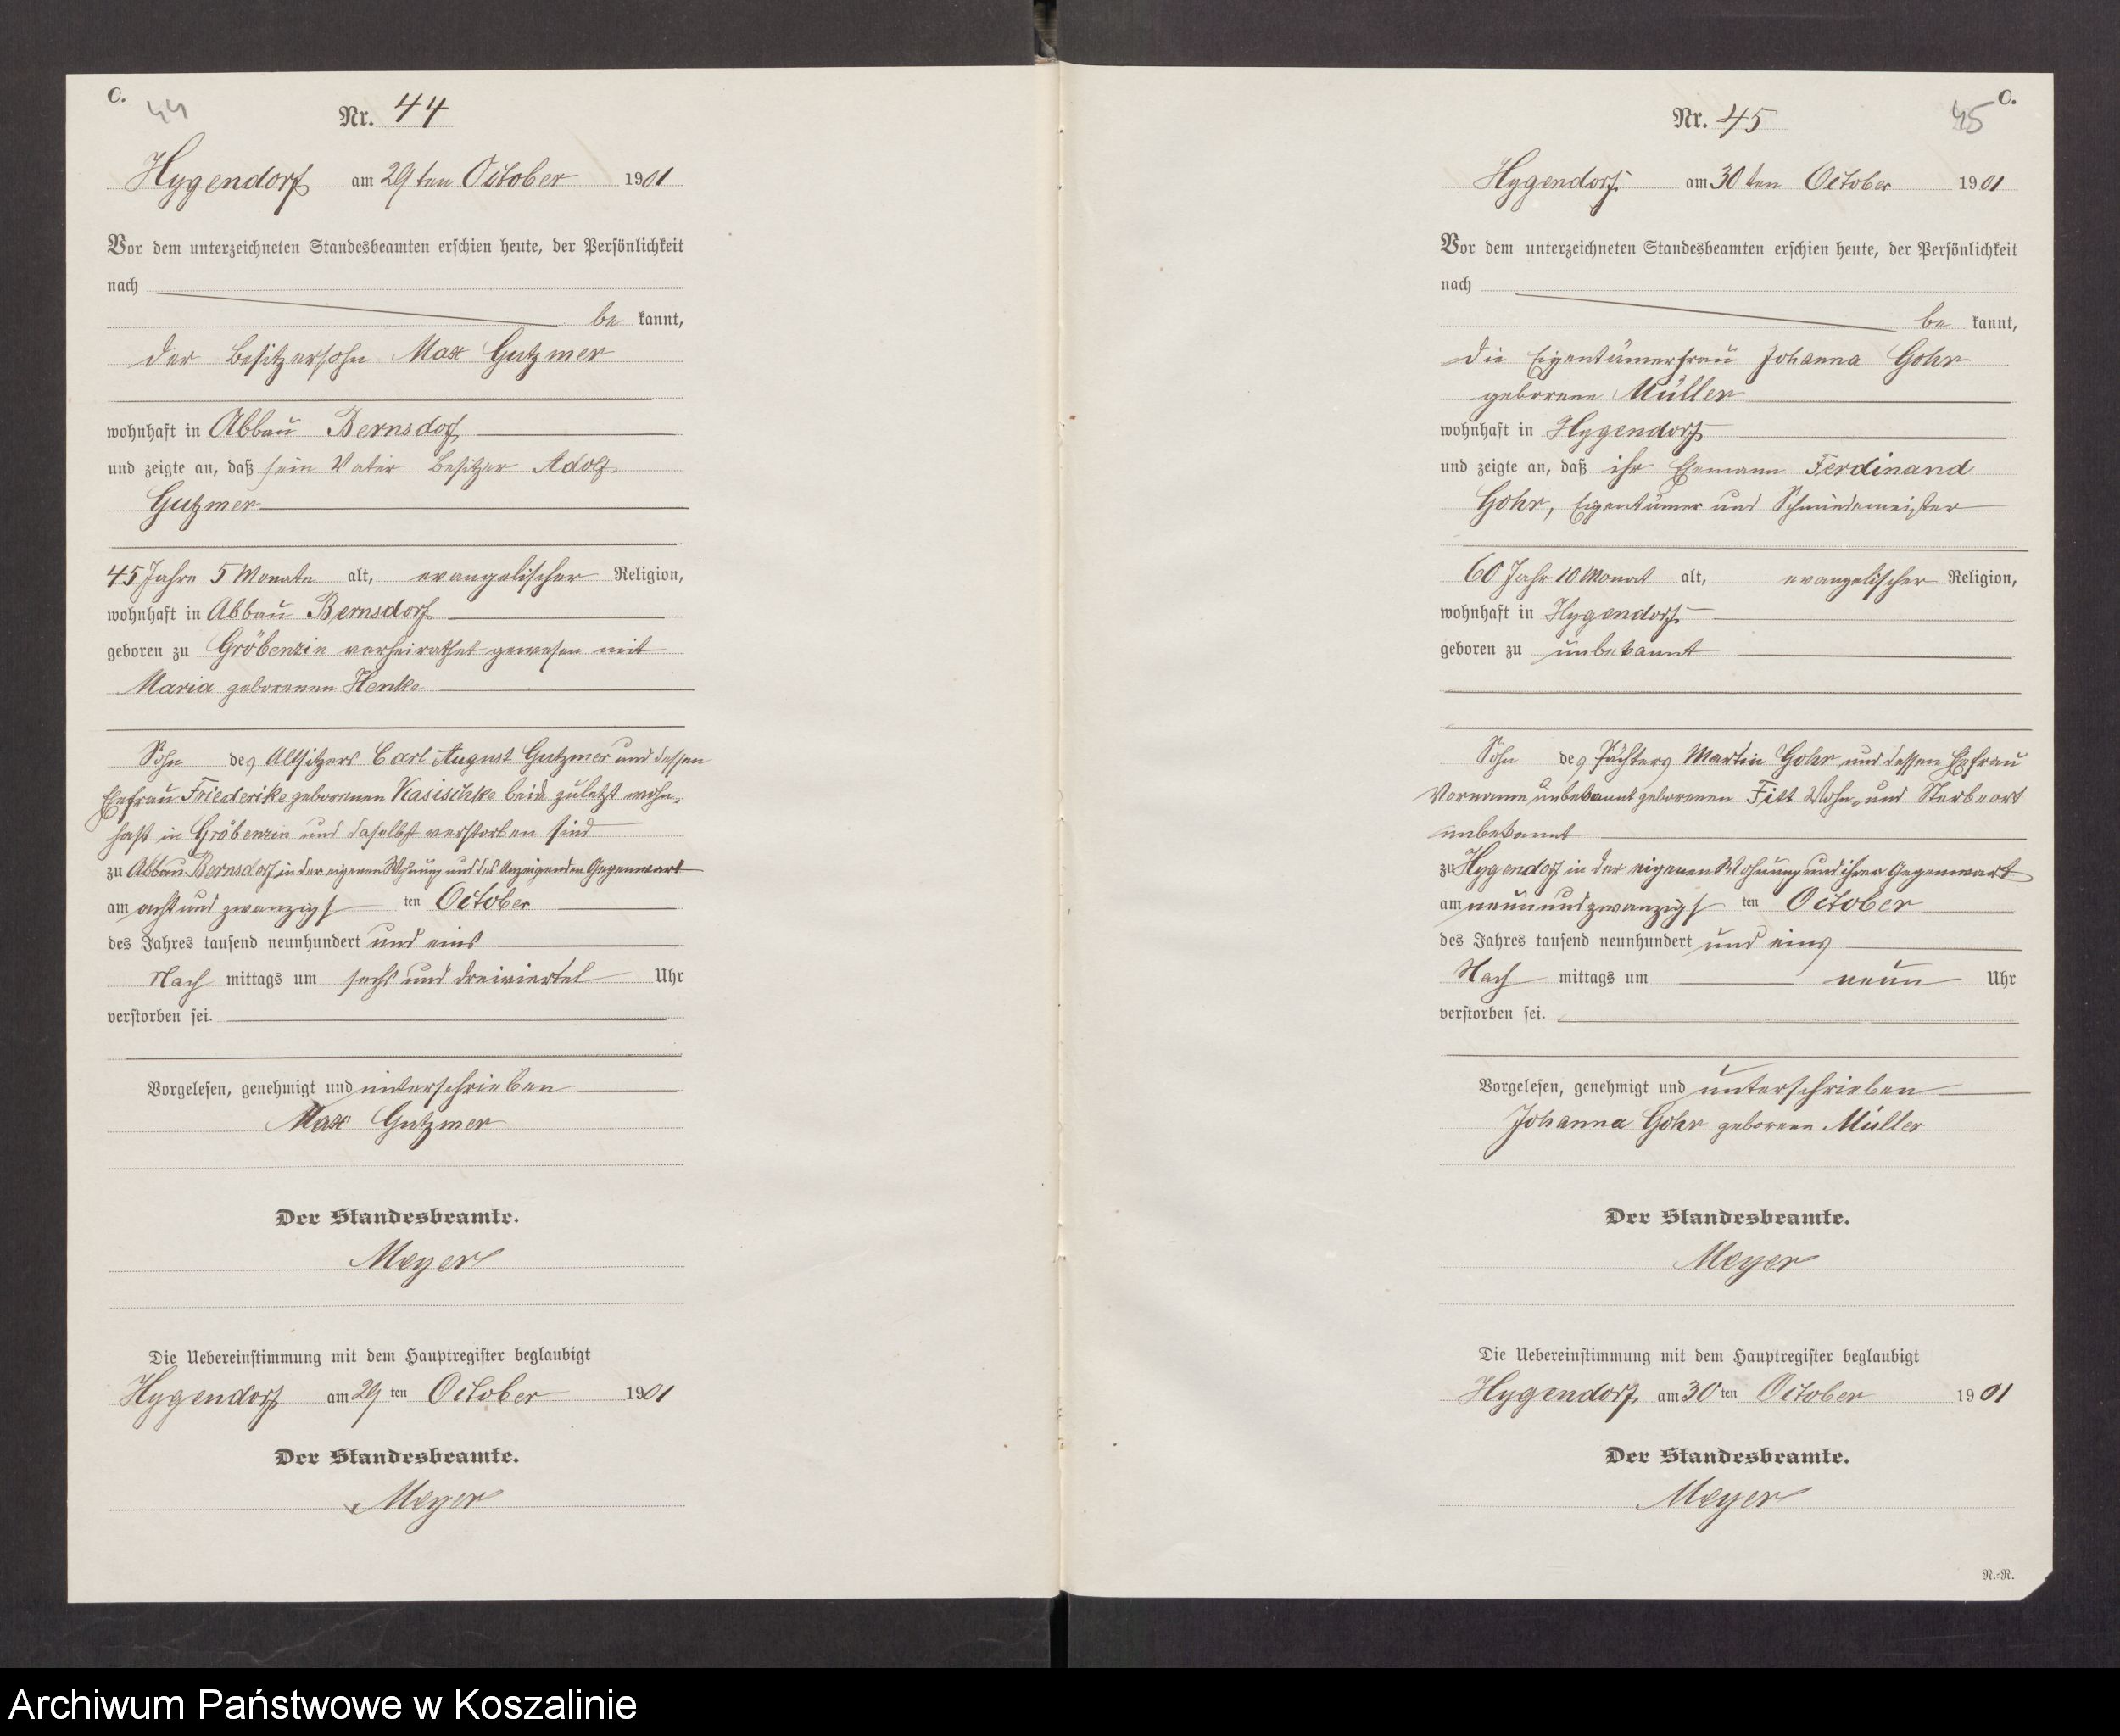 C.
44
Nr. 44
Hygendorf am 29ten October 1901
Vor dem unterzeichneten Standesbeamten erschien heute, der Persönlichkeit
nach
be kannt,
der Besitzersohn Max Gutzmer
wohnhaft in Abbau Bernsdorf
und zeigte an, daß sein Vater Besitzer Adolf
Gutzmer
45 Jahre 5 Monate alt, evangelischer Religion,
wohnhaft in Abbau Bernsdorf
geboren zu Gröbenzin verheirathet gewesen mit
Maria geborenen Henke
Sohn des Altsitzers Carl August Gutzmer und dessen
Ehefrau Friederike geborenen Kasischke beide zuletzt wohn-
haft in Gröbenzin und daselbst verstorben sind
zu Abbau Bernsdorf in der eigenen Wohnung und des Anzeigenden Gegenwart
am acht und zwanzigs ten October
des Jahres tausend neunhundert und eins
Nach mittags um sechs und dreiviertel Uhr
verstorben sei.
Vorgelesen, genehmigt und unterschrieben
Max Gutzmer
Der Standesbeamte.
Meyer
Die Uebereinstimmung mit dem Hauptregister beglaubigt
Hygendorf am 29 ten October 1901
Der Standesbeamte.
Meyer
C.
45
Nr. 45
Hygendorf am 30ten October 1901
Vor dem unterzeichneten Standesbeamten erschien heute, der Persönlichkeit
nach
be kannt,
die Eigentümerfrau Johanna Gohr
geborene Müller
wohnhaft in Hygendorf
und zeigte an, daß ihr Ehemann Ferdinand
Gohr, Eigentümer und Schmiedemeister
60 Jahr 10 Monat alt, evangelischer Religion,
wohnhaft in Hygendorf
geboren zu unbekannt
Sohn des Pächters Martin Gohr und dessen Ehefrau
Vorname unbekannt geborenen Witt Wohn- und Sterbeort
unbekannt
zu Hygendorf in der eigenen Wohnung und ihrer Gegenwart
am neunundzwanzigs ten October
des Jahres tausend neunhundert und eins
Nach mittags um neun Uhr
verstorben sei.
Vorgelesen, genehmigt und unterschrieben
Johanna Gohr geborene Müller
Der Standesbeamte.
Meyer
Die Uebereinstimmung mit dem Hauptregister beglaubigt
Hygendorf am 30 ten October 1901
Der Standesbeamte.
Meyer
N.=N.
Archiwum Państwowe w Koszalinie